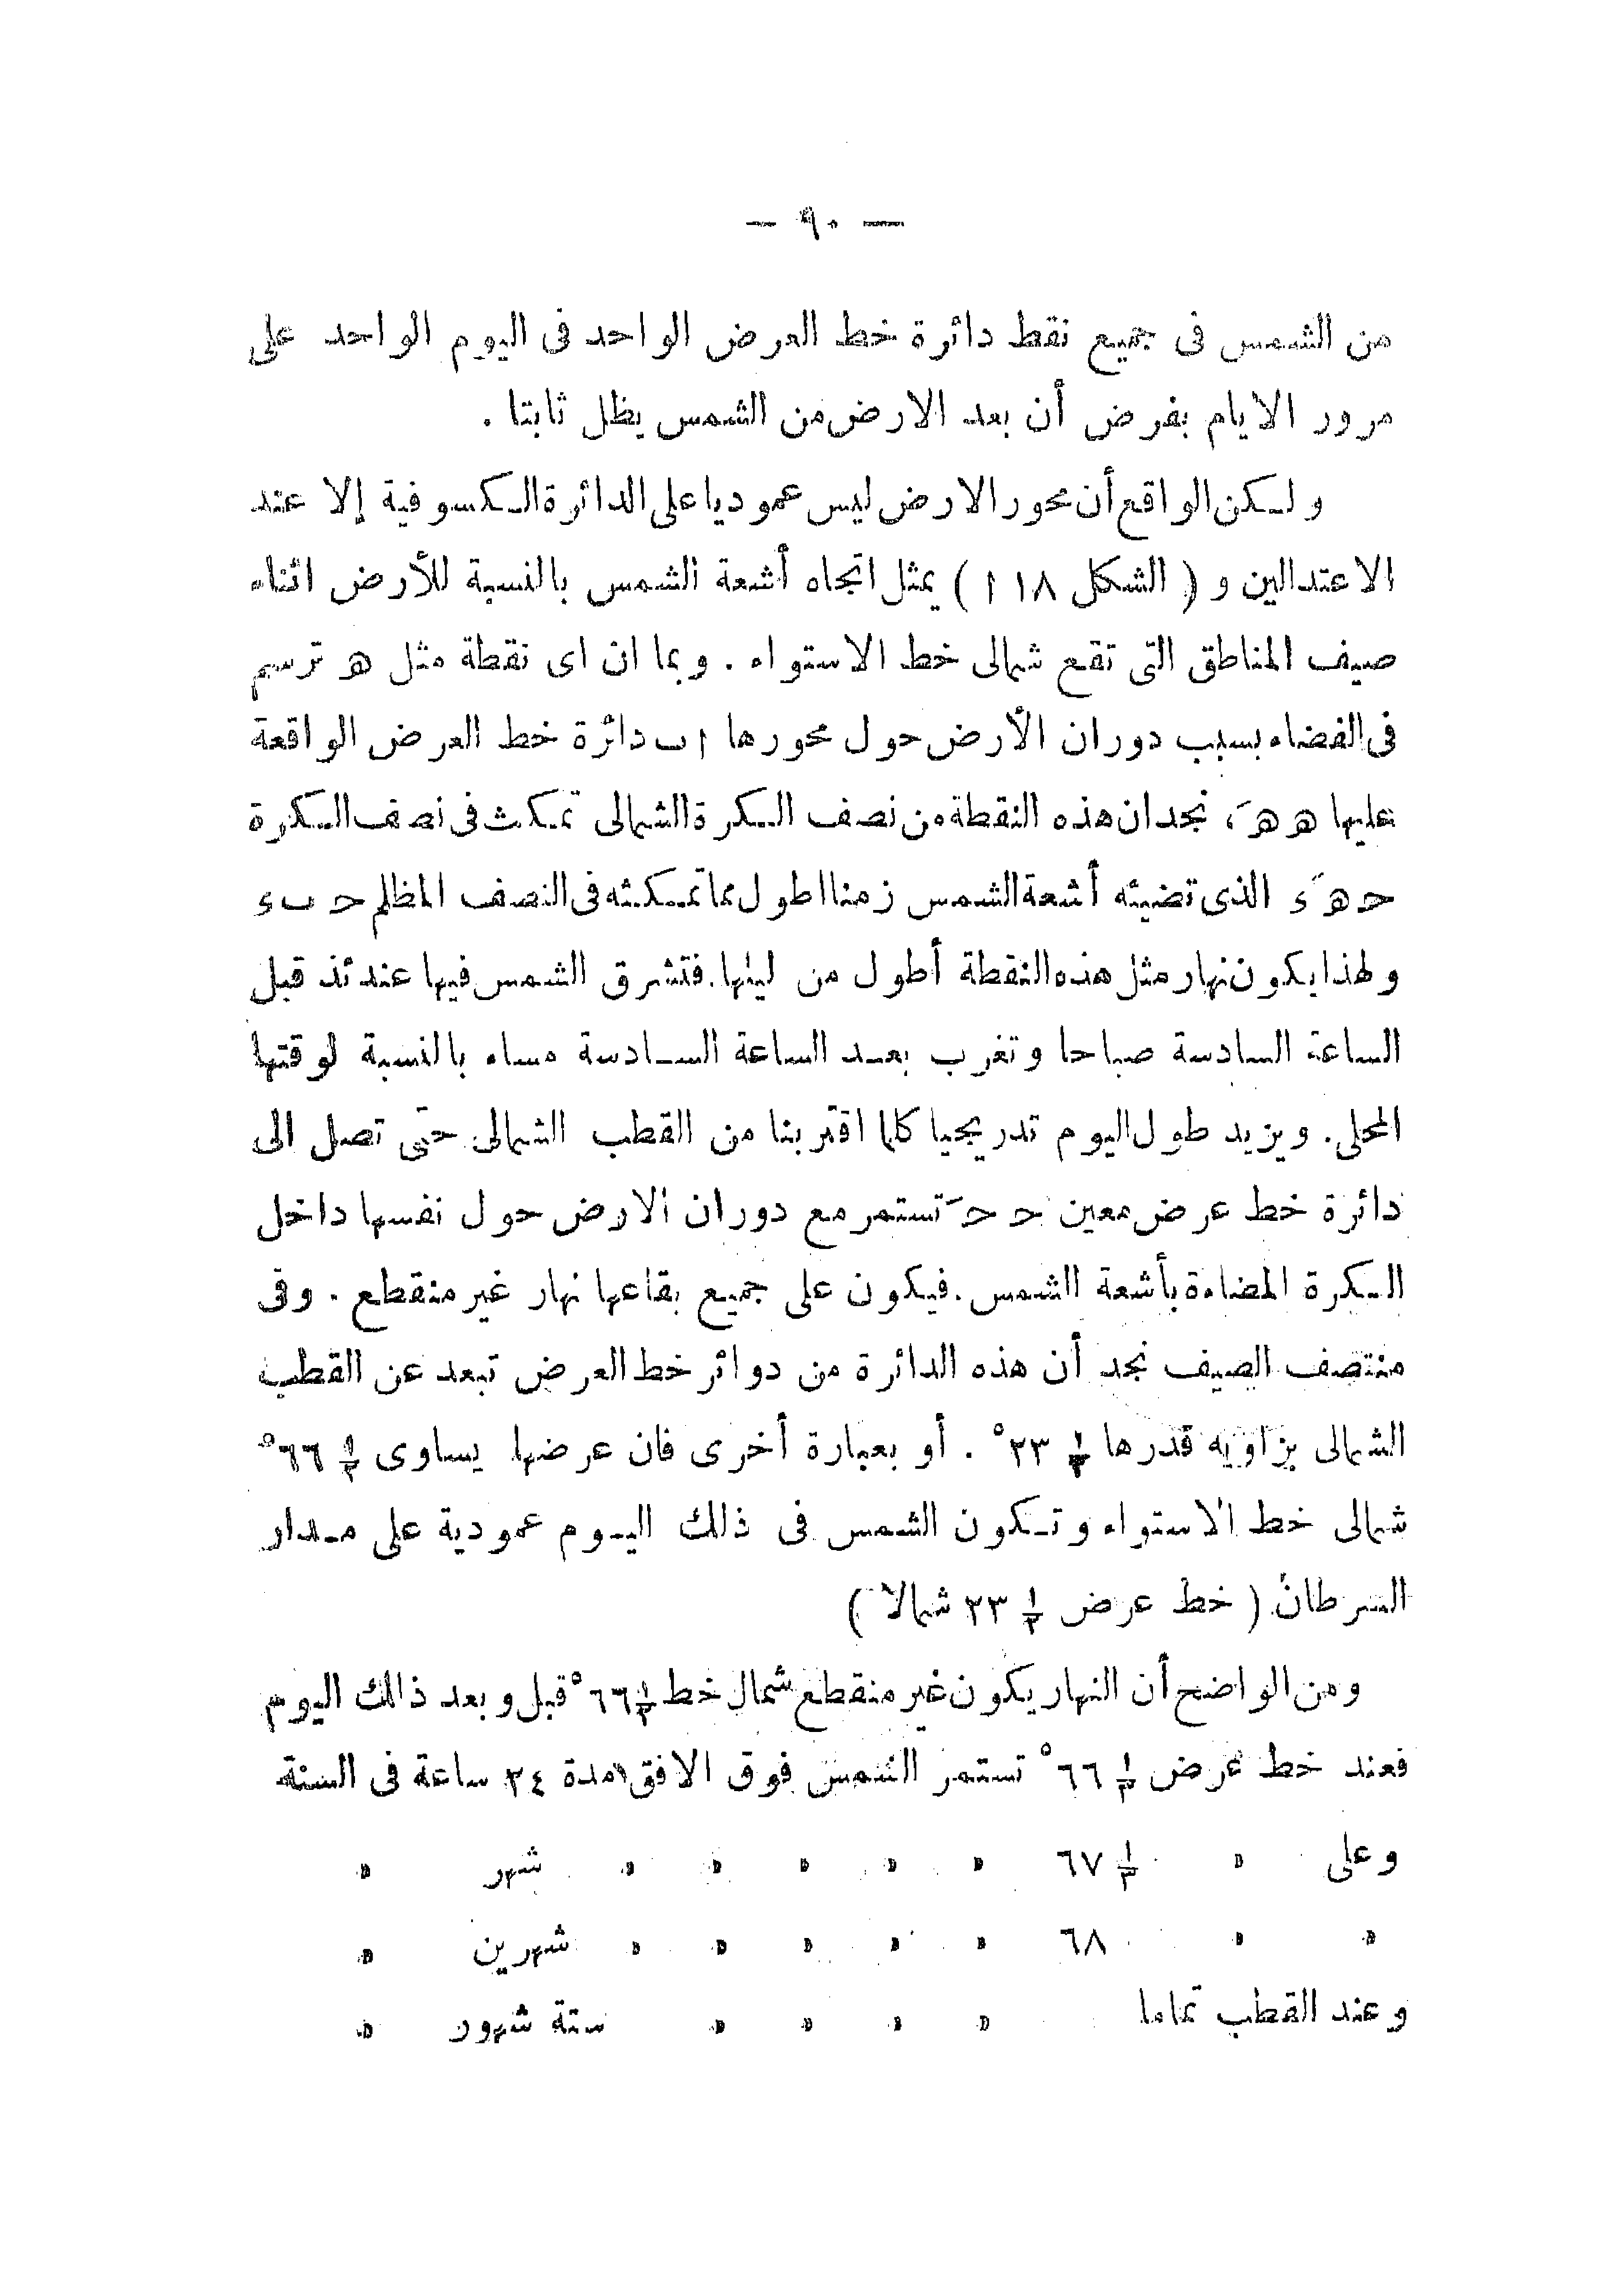 — ٩٠ —
من الشمس فى جميع نقط دائرة خط العرض الواحد فى اليوم الواحد على
مرور الايام بفرض أن بعد الارض من الشمس يظل ثابتا .
ولكن الواقع أن محور الارض ليس عموديا على الدائرة الكسوفية إلا عند
الاعتدالين و ( الشكل ١٨ ا ) يمثل اتجاه أشعة الشمس بالنسبة للأرض اثناء
صيف المناطق التى تقع شمالى خط الاستواء . وبما ان اى نقطة مثل هـ ترسم
فى الفضاء بسبب دوران الأرض حول محورها اب دائرة خط العرض الواقعة
عليها هـ هـَ ، نجد ان هذه النقطة من نصف الكرة الشمالى تمكث فى نصف الكرة
حـ هـَ ء الذى تضيئه أشعة الشمس زمنا اطول مما تمكثه فى النصف المظلم حـ ب ء
ولهذا يكون نهار مثل هذه النقطة أطول من ليلها . فتشرق الشمس فيها عندئذ قبل
الساعة السادسة صباحا وتغرب بعد الساعة السادسة مساء بالنسبة لوقتها
المحلى . ويزيد طول اليوم تدريجيا كلما اقتربنا من القطب الشمالى حتى تصل الى
دائرة خط عرض معين حـ حـَ تستمر مع دوران الارض حول نفسها داخل
الكرة المضاءة بأشعة الشمس . فيكون على جميع بقاعها نهار غير منقطع . وفى
منتصف الصيف نجد أن هذه الدائرة من دوائر خط العرض تبعد عن القطب
الشمالى بزاويه قدرها ½ ٢٣° . أو بعبارة أخرى فان عرضها يساوى ½ ٦٦°
شمالى خط الاستواء وتكون الشمس فى ذلك اليوم عمودية على مدار
السرطان ( خط عرض ½ ٢٣ شمالا )
ومن الواضح أن النهار يكون غير منقطع شمال خط ½ ٦٦° قبل وبعد ذالك اليوم
فعند خط عرض ½ ٦٦° تستمر الشمس فوق الافق مدة ٢٤ ساعة فى السنة
وعلى » ½ ٦٧ » » » » » شهر »
» » ٦٨ » » » » » شهرين »
وعند القطب تماما » » » » ستة شهور »